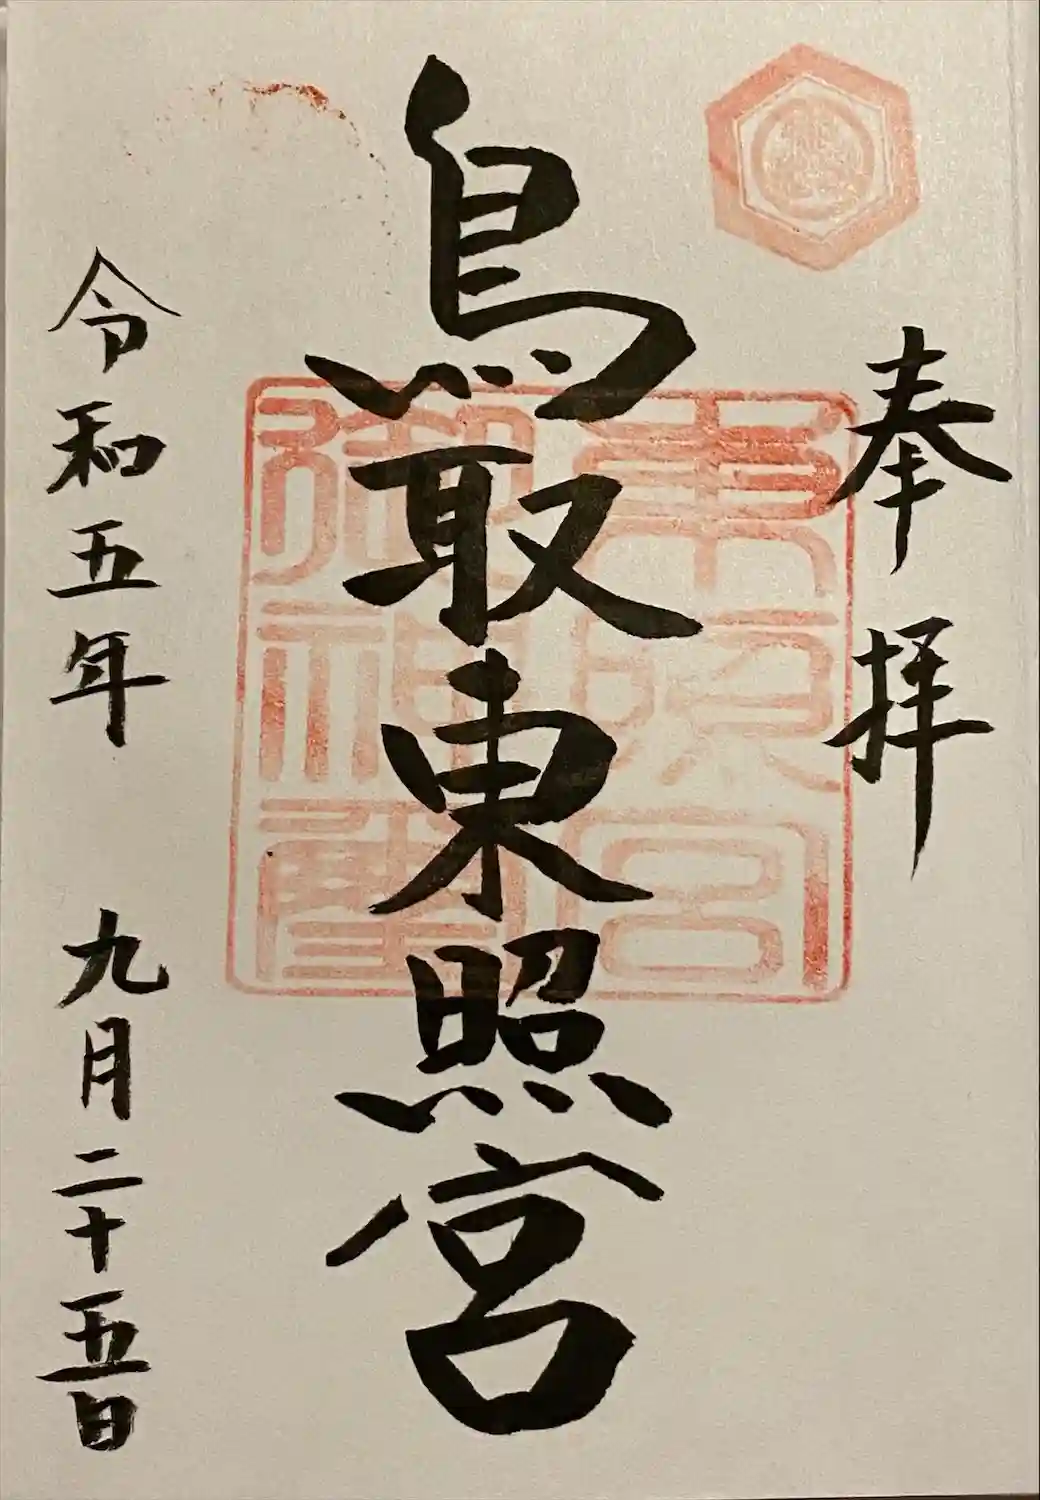 奉拝
鳥取東照宮
東照宮
御神璽
令和五年 九月二十五日